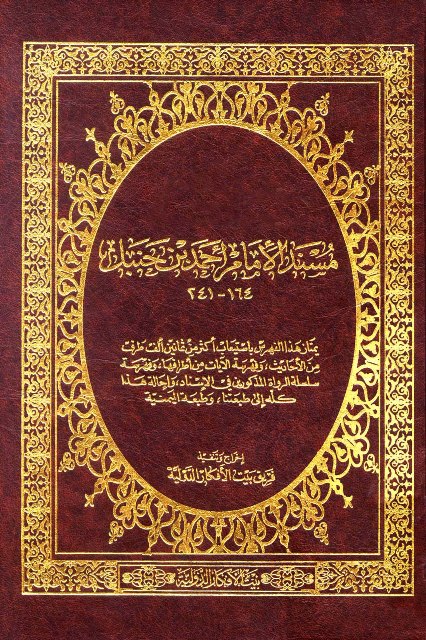 مسند الإمام أحمد بن حنبل
١٦٤ - ٢٤١
يمتاز هذا الفهرس باستيعاب أكثر من ثمانين ألف طرف
من الأحاديث، وفهرسة الآيات من أطرافها، وفهرسة
سلسلة الرواة المذكورين في الإسناد، وإحالة هذا
كله إلى طبعتنا، وطبعة الميمنية
إخراج وتنفيذ
فريق بيت الأفكار الدولية
بيت الأفكار الدولية